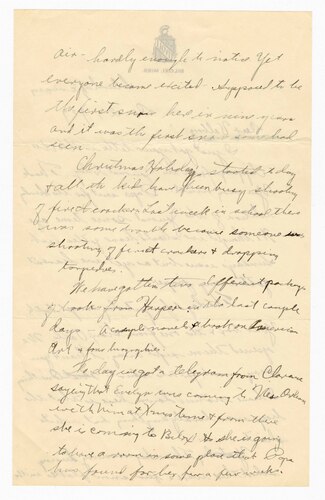 air - hardly enough to notice yet
everyone became excited supposed to be
the first snow here in nine years
and it was the first snow some had
seen.
Christmas Holidays started today
& all the kids have been busy shooting
fire crackers. Last week in school there
was some trouble because someone was
shooting of fire crackers & dropping
torpedoes.
We have gotten two different packages
of books from Harper in the last couple
days - a couple novels & book on American
Art & four biographies.
Today we got a telegram from Clarance
saying that Evelyn was coming to New Orleans
with him at Xmas time & from there
she is coming to Biloxi & she is going
to have a room in some place that Papa
has found for her for a few weeks.